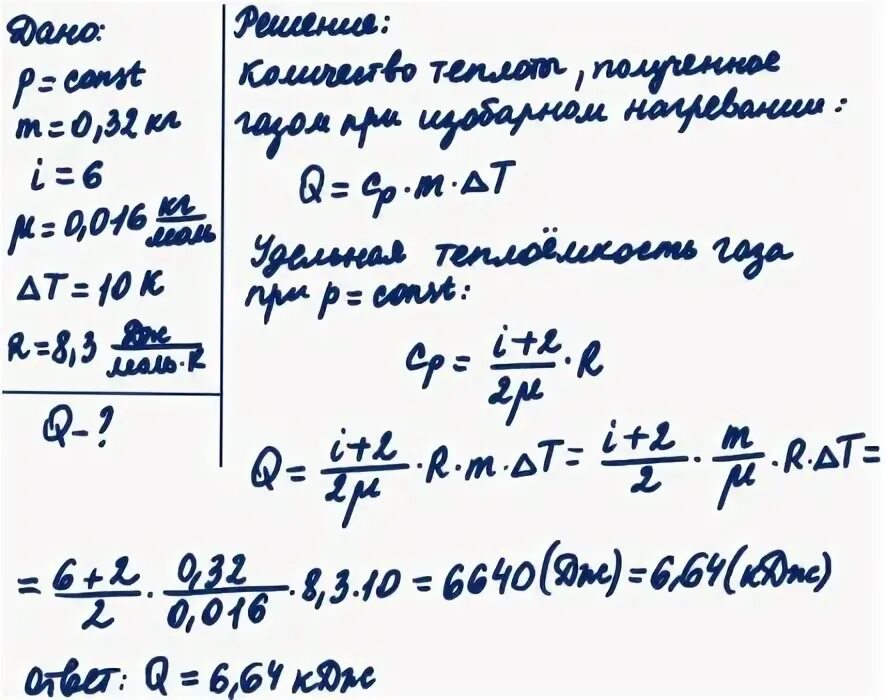 Дано:
p = const
m = 0,32 кг
i = 6
μ = 0,016 кг/моль
ΔT = 10 К
R = 8,3 Дж/моль·К
Q - ?
Решение:
Количество теплоты, полученное
газом при изобарном нагревании:
Q = cp · m · ΔT
Удельная теплоёмкость газа
при p = const:
cp = i+2/2μ · R
Q = i+2/2μ · R · m · ΔT = i+2/2 · m/μ · R · ΔT =
= 6+2/2 · 0,32/0,016 · 8,3 · 10 = 6640 (Дж) = 6,64 (кДж)
ответ: Q = 6,64 кДж